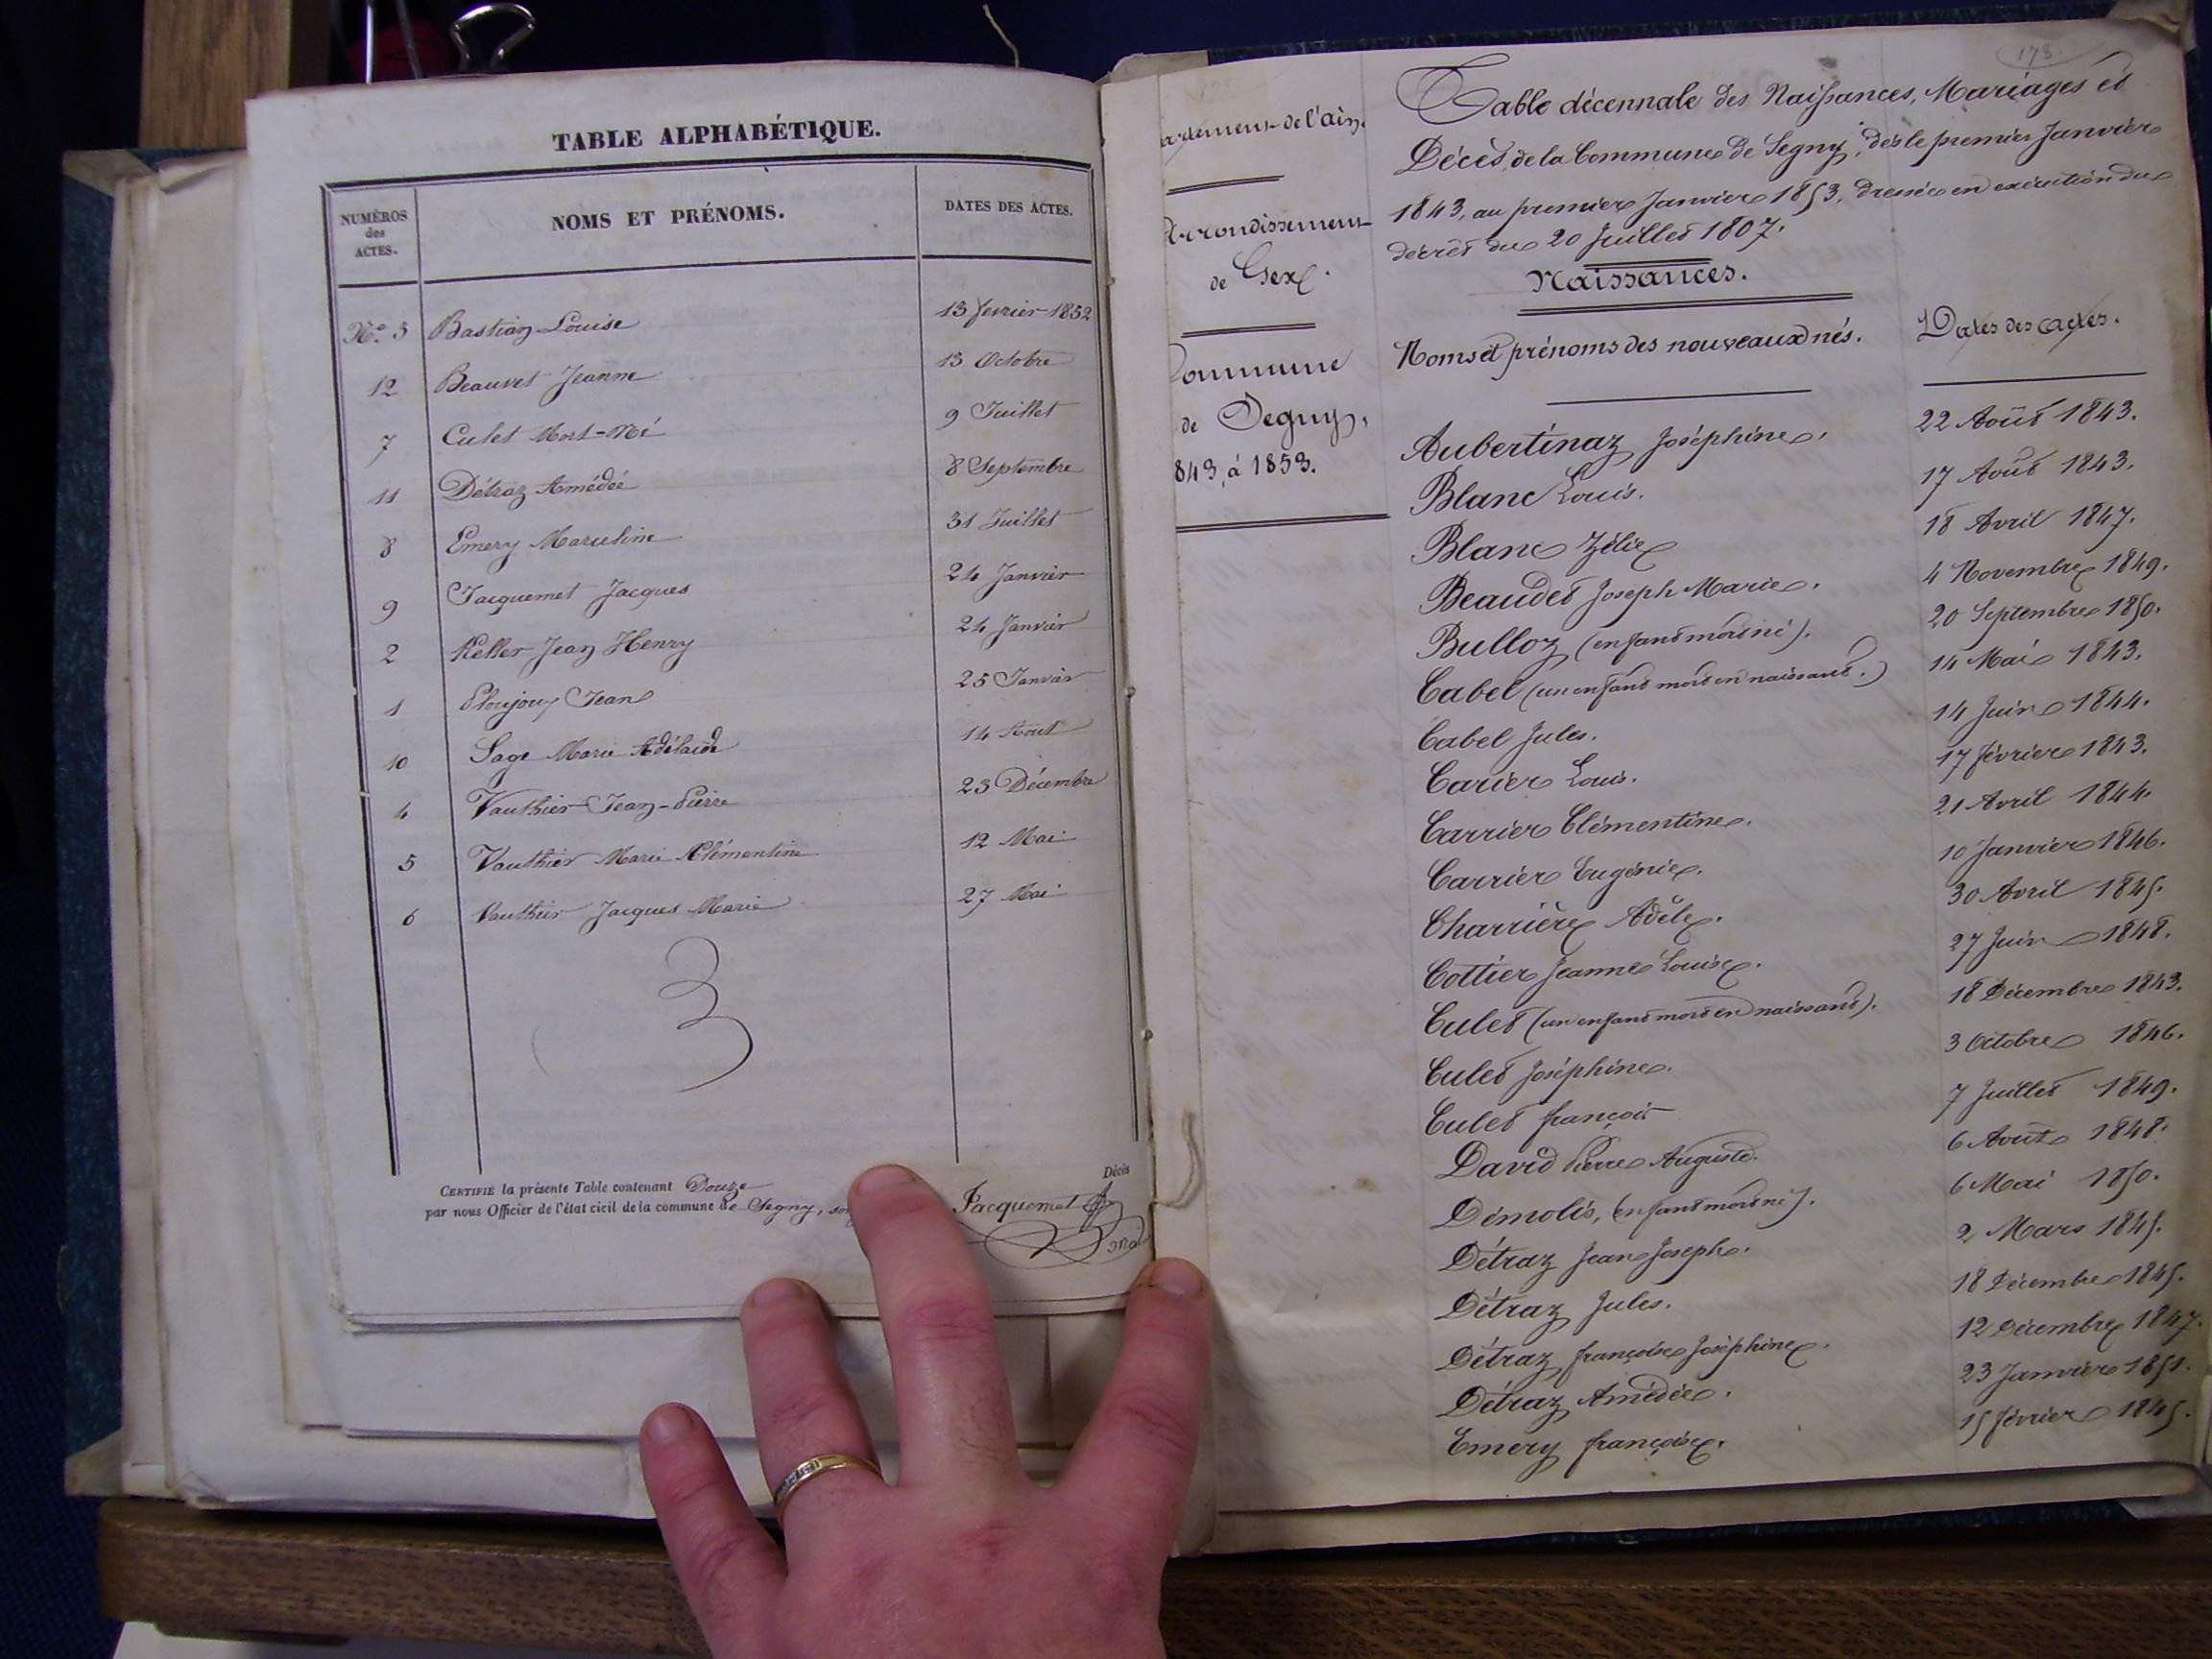 TABLE ALPHABÉTIQUE.
NUMÉROS des ACTES. NOMS ET PRÉNOMS. DATES DES ACTES.
N.º 3 Bastian Louise 13 fevrier 1852
12 Beauvet Jeanne 13 Octobre
7 Culet Mort-Né 9 Juillet
11 Détraz Amédée 8 Septembre
8 Emery Marceline 31 Juillet
9 Jacquemet Jacques 24 Janvier
2 Keller Jean Henry 24 Janvier
1 Jean 25 Janvier
10 Sage Marie Adélaide 14 Aout
4 Vauthier Jean-Pierre 23 Décembre
5 Vauthier Marie Clémentine 12 Mai
6 Vauthier Jacques Marie 27 Mai
Décès
CERTIFIÉ la présente Table contenant Douze
par nous Officier de l'état cicil de la commune de Segny,
Jacquemet
178.
artement de l'ain.
Arrondissement
de Gex.
Commune
de Segny,
843, à 1853.
Table décennale des Naissances, Mariages et
Décès, de la Commune de Segny, dès le premier Janvier
1843, au premier Janvier 1853, dressée en exécution du
décret du 20 Juillet 1807.
Naissances.
Noms et prénoms des nouveaux nés. Dates des actes.
Aubertinaz Joséphine. 22 Août 1843.
Blanc Louis. 17 Août 1843.
Blanc Zélie 18 Avril 1847.
Beaudet Joseph Marie. 4 Novembre 1849.
Bulloz (enfant mort né). 20 Septembre 1850.
Cabel (un enfant mort en naissant.) 14 Mai 1843.
Cabel Jules. 14 Juin 1844.
Carier Louis. 17 février 1843.
Carrier Clémentine. 21 Avril 1844.
Carrier Eugénie. 10 Janvier 1846.
Charrière Adèle. 30 Avril 1845.
Cottier Jeanne Louise. 27 Juin 1848.
Culet (un enfant mort en naissant). 18 Décembre 1843.
Culet Joséphine. 3 Octobre 1846.
Culet françois 7 Juillet 1849.
David Pierre Auguste. 6 Août 1848.
Démolis, (enfant mort né). 6 Mai 1850.
Détraz Jean Joseph. 2 Mars 1845.
Détraz Jules. 18 Décembre 1845.
Détraz françoise Joséphine. 12 Décembre 1847.
Détraz Amédée. 23 Janvier 1851.
Emery françoise. 15 février 1845.